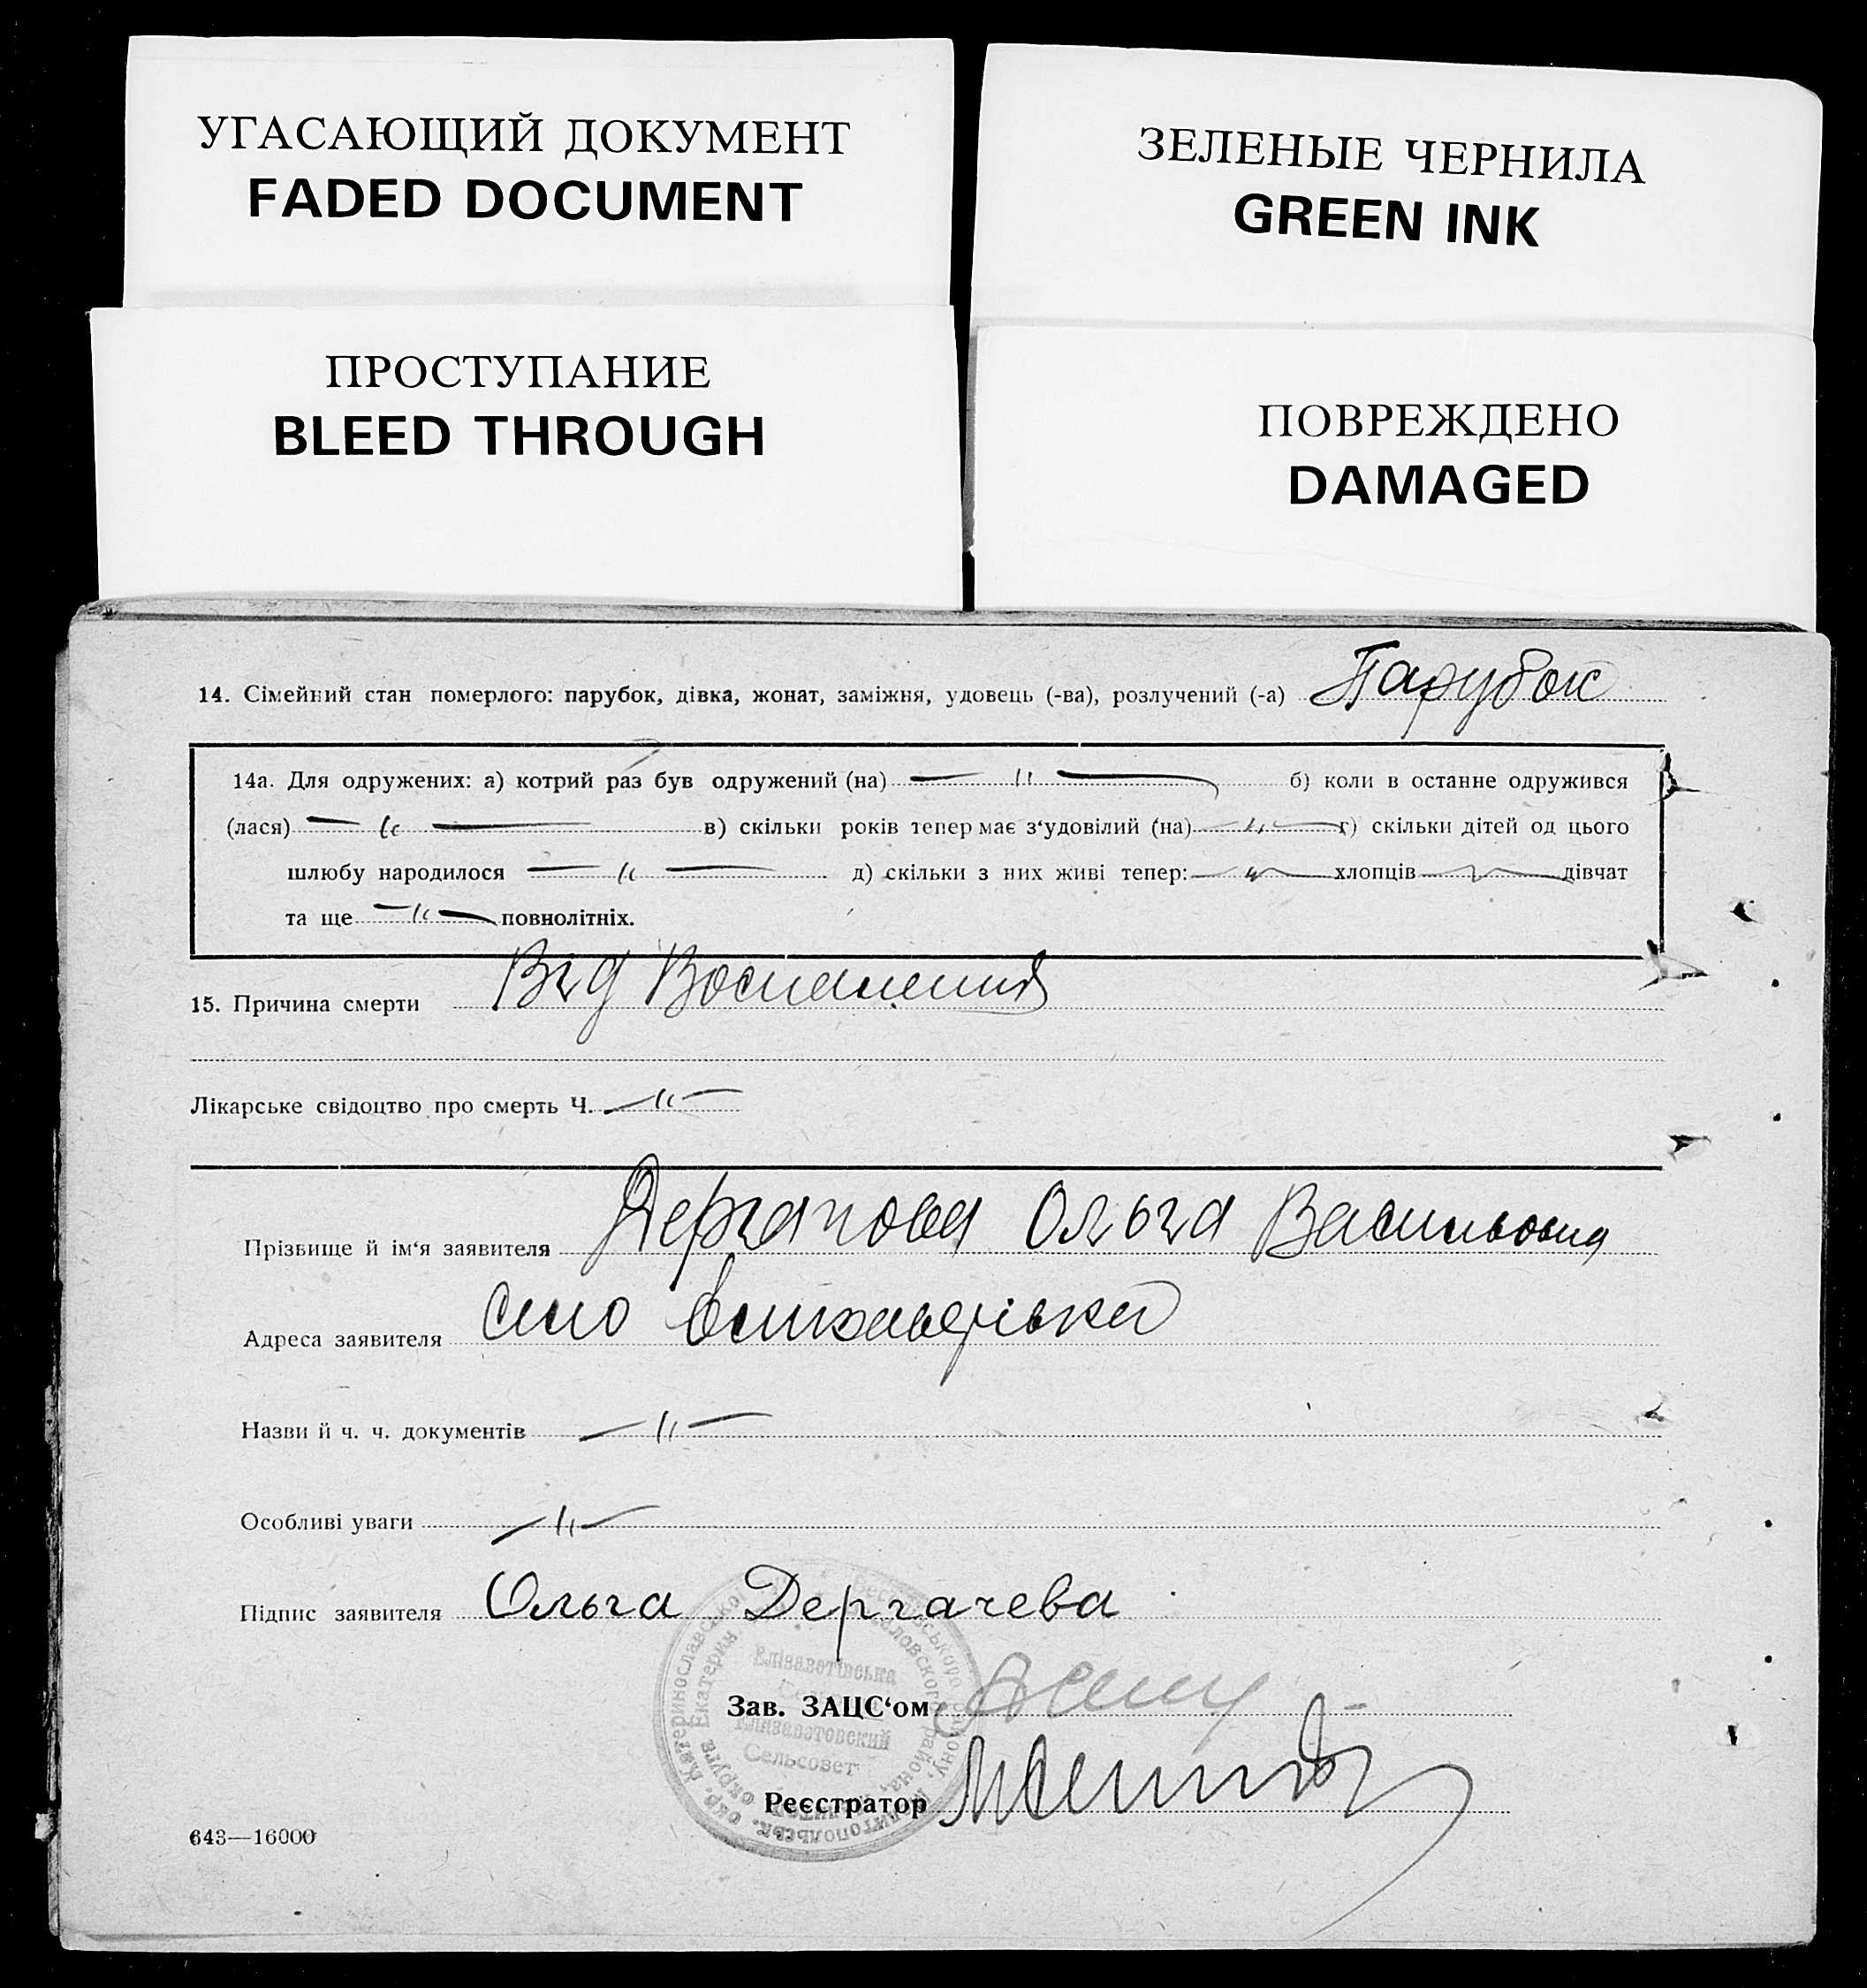 УГАСАЮЩИЙ ДОКУМЕНТ
FADED DOCUMENT
ЗЕЛЕНЫЕ ЧЕРНИЛА
GREEN INK
ПРОСТУПАНИЕ
BLEED THROUGH
ПОВРЕЖДЕНО
DAMAGED
14. Сімейний стан померлого: парубок, дівка, жонат, заміжня, удовець (-ва), розлучений (-а) Парубок
14а. Для одружених: а) котрий раз був одружений (на) — " — б) коли в останне одружився
(лася) — " — в) скільки років тепер має з‘удовілий (на) — " — г) скільки дітей од цього
шлюбу народилося — " — д) скільки з них живі тепер: — " — хлопців — " — дівчат
та ще — " — повнолітніх.
15. Причина смерти Від Воспаления
Лікарське свідоцтво про смерть Ч. — " —
Прізвище й ім‘я заявителя Дергачова Ольга Васильовна
Адреса заявителя село Єлизаветівка
Назви й ч. ч. документів — " —
Особливі уваги — " —
Підпис заявителя Ольга Дергачева
Єлізаветівська
Елизаветовский
Сельсовет
Зав. ЗАЦС‘ом
Реєстратор
643—16000